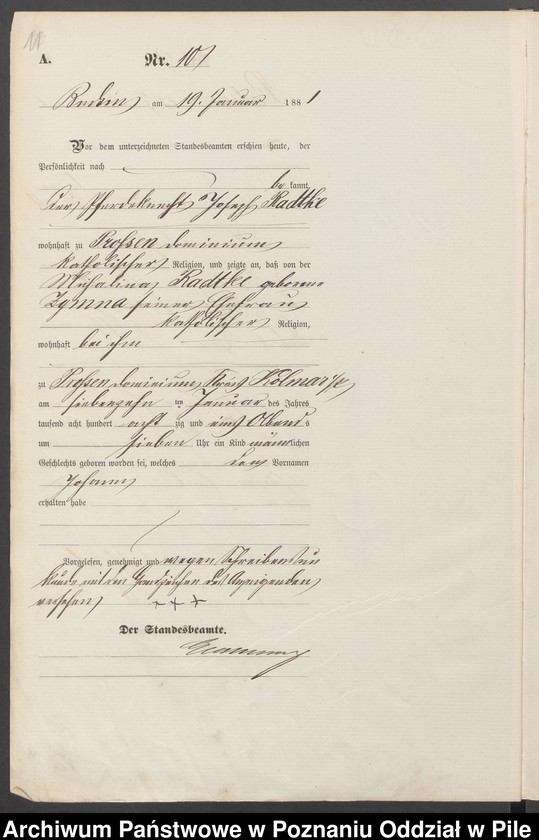 11
A.
Nr. 10
am 19. Januar 1881
Vor dem unterzeichneten Standesbeamten erschien heute, der
Persönlichkeit nach
be kannt,
der Pferdeknecht Joseph Radtke
wohnhaft zu Prossen dominium
katholischer Religion, und zeigte an, daß von der
Michalina Radtke geborene
Zymna seiner Ehefrau
katholischer Religion,
wohnhaft bei ihm
zu Prossen dominium Kreis Kolmar i/P
am siebenzehn ten Januar des Jahres
tausend acht hundert acht zig und eins Abends
um sieben Uhr ein Kind männlichen
Geschlechts geboren worden sei, welches den Vornamen
Johann
erhalten habe
Vorgelesen, genehmigt und wegen Schreibensun
kunde mit dem Handzeichen des Anzeigenden
versehen +++
Der Standesbeamte.
Archiwum Państwowe w Poznaniu Oddział w Pile